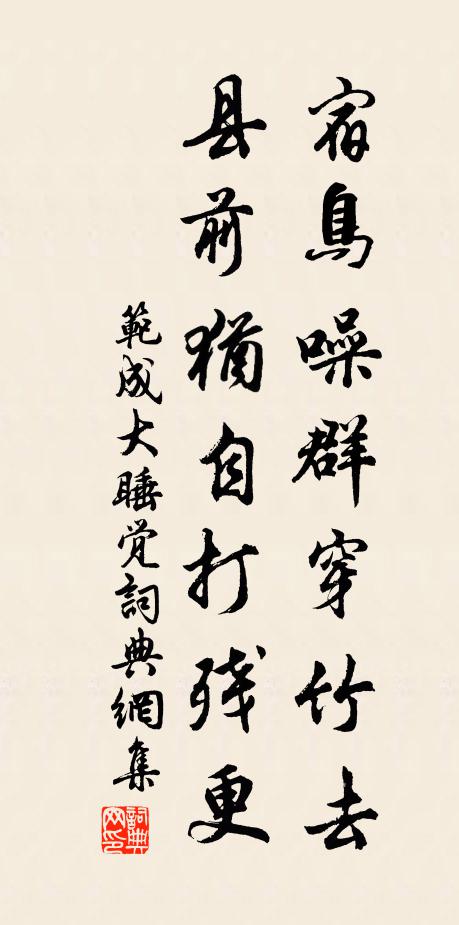 宿鳥噪群穿竹去
县前猶自打残更
範成大睡觉詞典網集
詞典網印